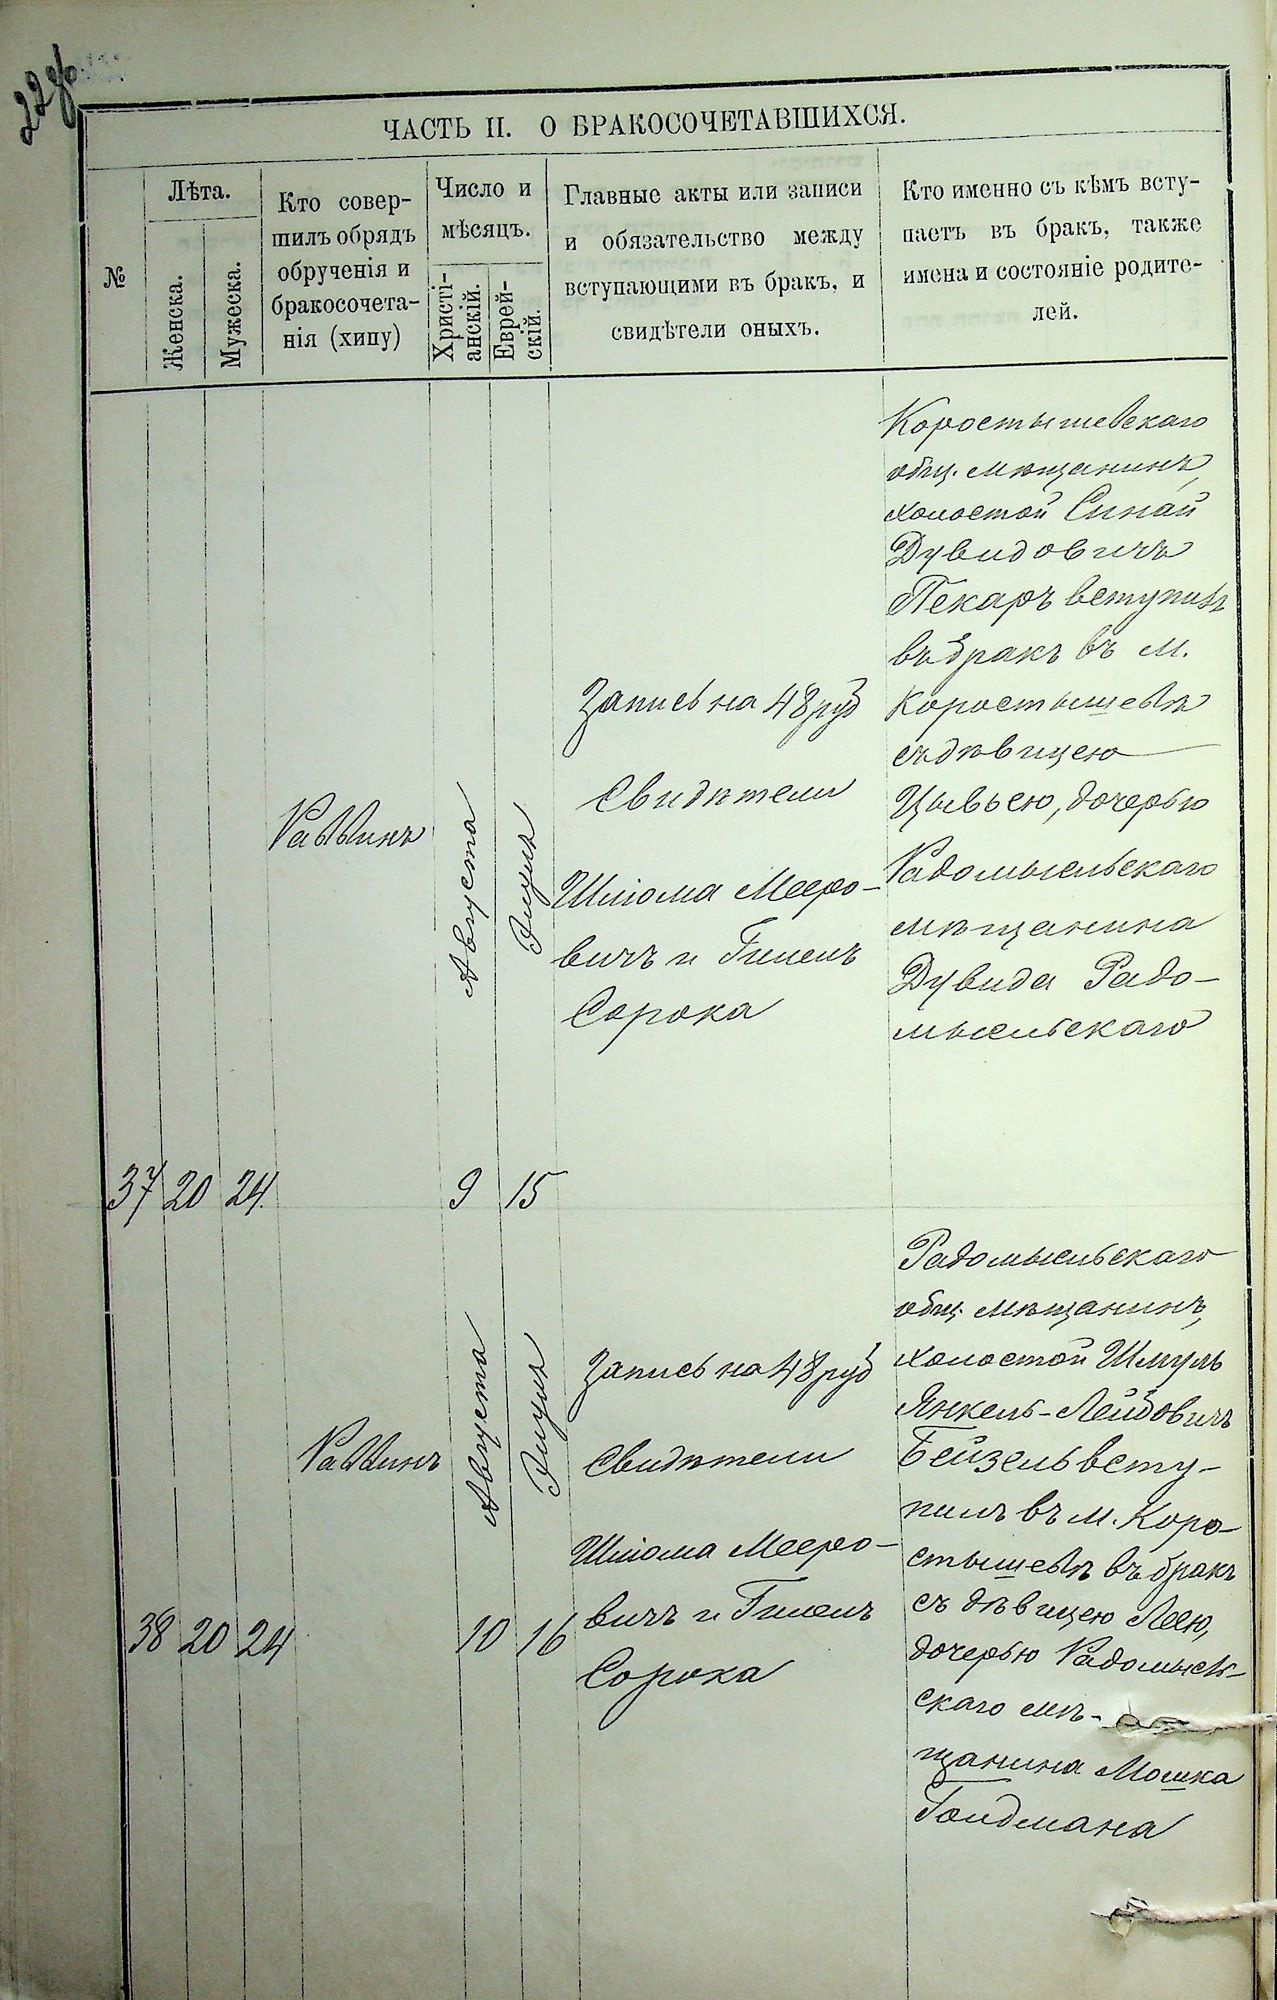 22об
ЧАСТЬ II. О БРАКОСОЧЕТАВШИХСЯ.
№
Лѣта.
Женска.
Мужеска.
Кто совер-
шилъ обрядъ
обрученія и
бракосочета-
нія (хипу)
Число и
мѣсяцъ.
Христі-
анскій.
Еврей-
скій.
Главные акты или записи
и обязательство между
вступающими въ бракъ, и
свидѣтели оныхъ.
Кто именно съ кѣмъ всту-
паетъ въ бракъ, также
имена и состояніе родите-
лей.
37
20
24.
Раввинъ
Августа
9
15
Запись на 48 руб
Свидѣтели
Шлiома Мееро-
вичъ и Гилелъ
Сорока
Коростышевскаго
общ. мѣщанинъ,
холостой Синай
Дувидовичъ
Пекаръ вступилъ
въ бракъ въ м.
Коростышевѣ
съ дѣвицею
Цывьею, дочерью
Радомысльскаго
мѣщанина
Дувида Радо-
мысльскаго
38
20
24
Раввинъ
Августа
10
16
Запись на 48 руб
Свидѣтели
Шлiома Мееро-
вичъ и Гилелъ
Сорока
Радомысльскаго
общ. мѣщанинъ,
холостой Шмуль
Янкель-Лейбовичъ
Бейзель всту-
пилъ въ м. Коро-
стышевѣ въ бракъ
съ дѣвицею Леею,
дочерью Радомысль-
скаго мѣ-
щанина Мошка
Голдмана